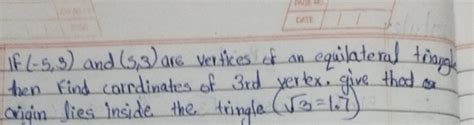 PAGE NO.
DATE
If (-5,3) and (5,3) are vertices of an equilateral triangle
then find corrdinates of 3rd vertex. give thod
origin lies inside the tringle (√3 = 1.7)